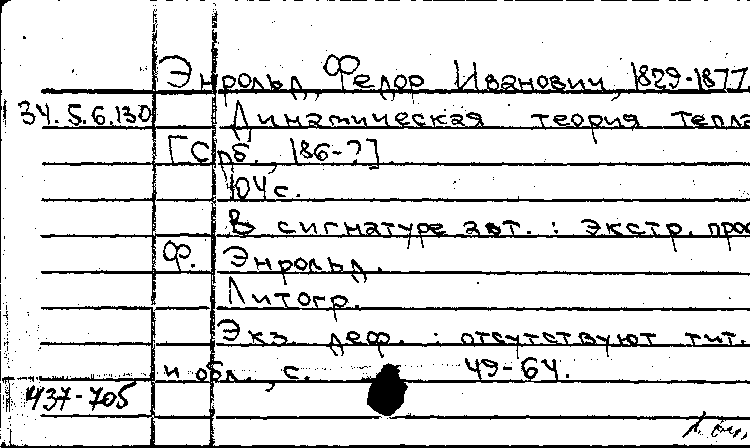 Энрольд, Федор Иванович, 1829-1877.
34.5.6.130 Динамическая теория тепла
[Спб., 186-?]
104 с.
В сигнатуре авт.: Экстр. проф
Ф. Энрольд.
Литогр.
Экз. деф.: отсутствуют тит.
и обл., с. 49-64.
437-705